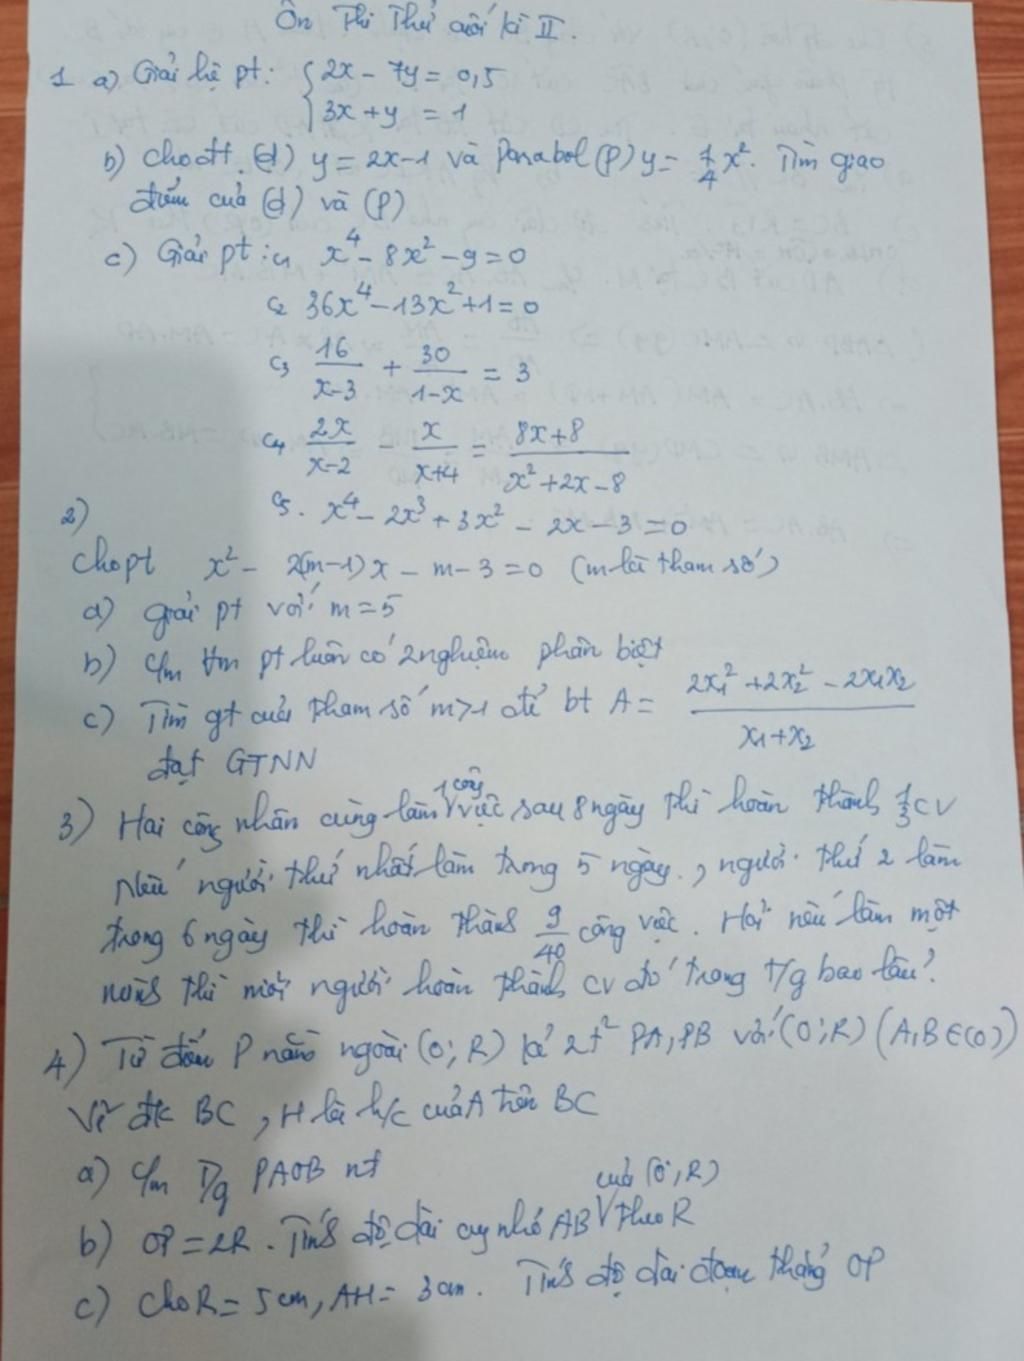 Ôn Thi Thử cuối kì II.
1 a) Giải hệ pt: { 2x - 7y = 0,5
3x + y = 1
b) Cho đt (d) y = 2x-1 và Parabol (P) y = 1/4 x². Tìm giao
điểm của (d) và (P)
c) Giải pt: c1 x⁴ - 8x² - 9 = 0
c2 36x⁴ - 13x² + 1 = 0
c3 16/(x-3) + 30/(1-x) = 3
c4 2x/(x-2) - x/(x+4) = (8x+8)/(x²+2x-8)
c5. x⁴ - 2x³ + 3x² - 2x - 3 = 0
2)
Cho pt x² - 2(m-1)x - m - 3 = 0 (m là tham số)
a) giải pt với m = 5
b) c/m ∀m pt luôn có 2 nghiệm phân biệt
c) Tìm gt của tham số m > 1 để bt A = (2x₁² + 2x₂² - 2x₁x₂)/(x₁+x₂)
đạt GTNN
3) Hai công nhân cùng làm 1 công việc sau 8 ngày thì hoàn thành 1/3 CV
Nếu người thứ nhất làm trong 5 ngày, người thứ 2 làm
trong 6 ngày thì hoàn thành 9/40 công việc. Hỏi nếu làm một
mình thì mỗi người hoàn thành CV đó trong t/g bao lâu?
4) Từ điểm P nằm ngoài (O; R) kẻ 2 t² PA, PB với (O; R) (A, B ∈ (O))
Vẽ đk BC, H là h/c của A trên BC
a) c/m T/g PAOB nt
b) OP = 2R. Tính độ dài cung nhỏ AB của (O; R) theo R
c) Cho R = 5 cm, AH = 3 cm. Tính độ dài đoạn thẳng OP